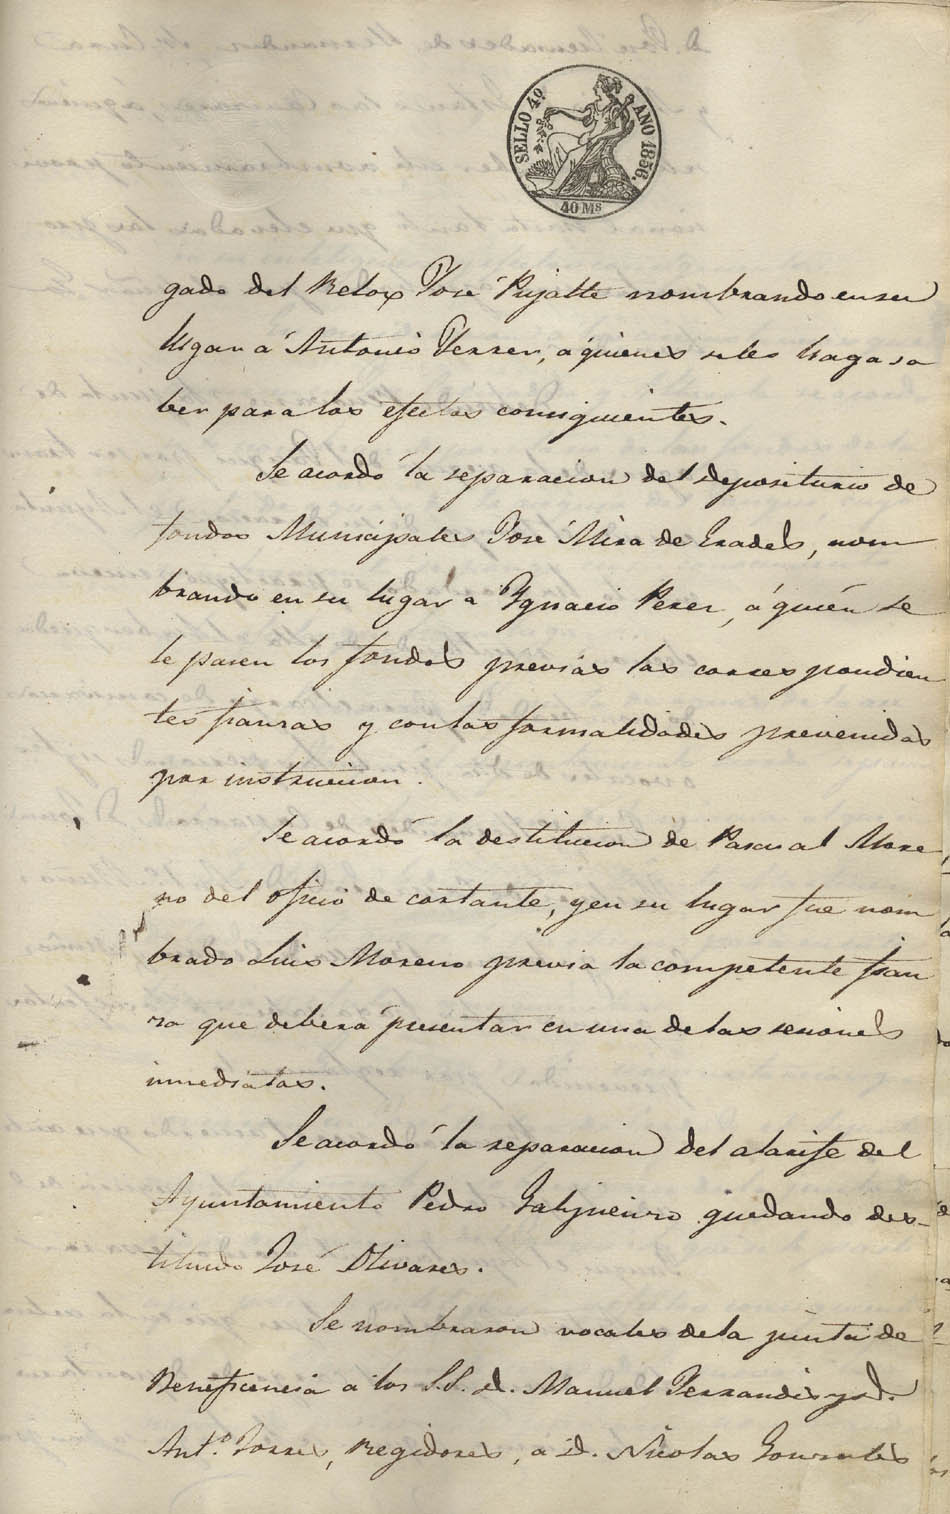 SELLO 4º AÑO 1856.
40 Ms
gado del Relox José Pujalte nombrando en su
lugar á Antonio Ferrer, á quienes se les haga sa
ber para los efectos consiguientes.
Se acordó la separacion del depositario de
fondos Municipales José Mira de Gradels, nom
brando en su lugar a Ygnacio Perez, á quién se
le pasen los fondos previas las correspondien
tes fianzas y con las formalidades prevenidas
por instrucion.
Se acordó la destitucion de Pascual More
no del oficio de cortante, y en su lugar fue nom
brado Luis Moreno previa la competente fian
za que deberá presentar en una de las sesiones
inmediatas.
Se acordó la separacion del alarife del
Ayuntamiento Pedro quedando des-
tituido José Olivares.
Se nombraron vocales de la junta de
Beneficencia a los S.S. d. Manuel Ferrandis y d.
Ant.º Torres, Regidores, a d. Nicolas Gonzales